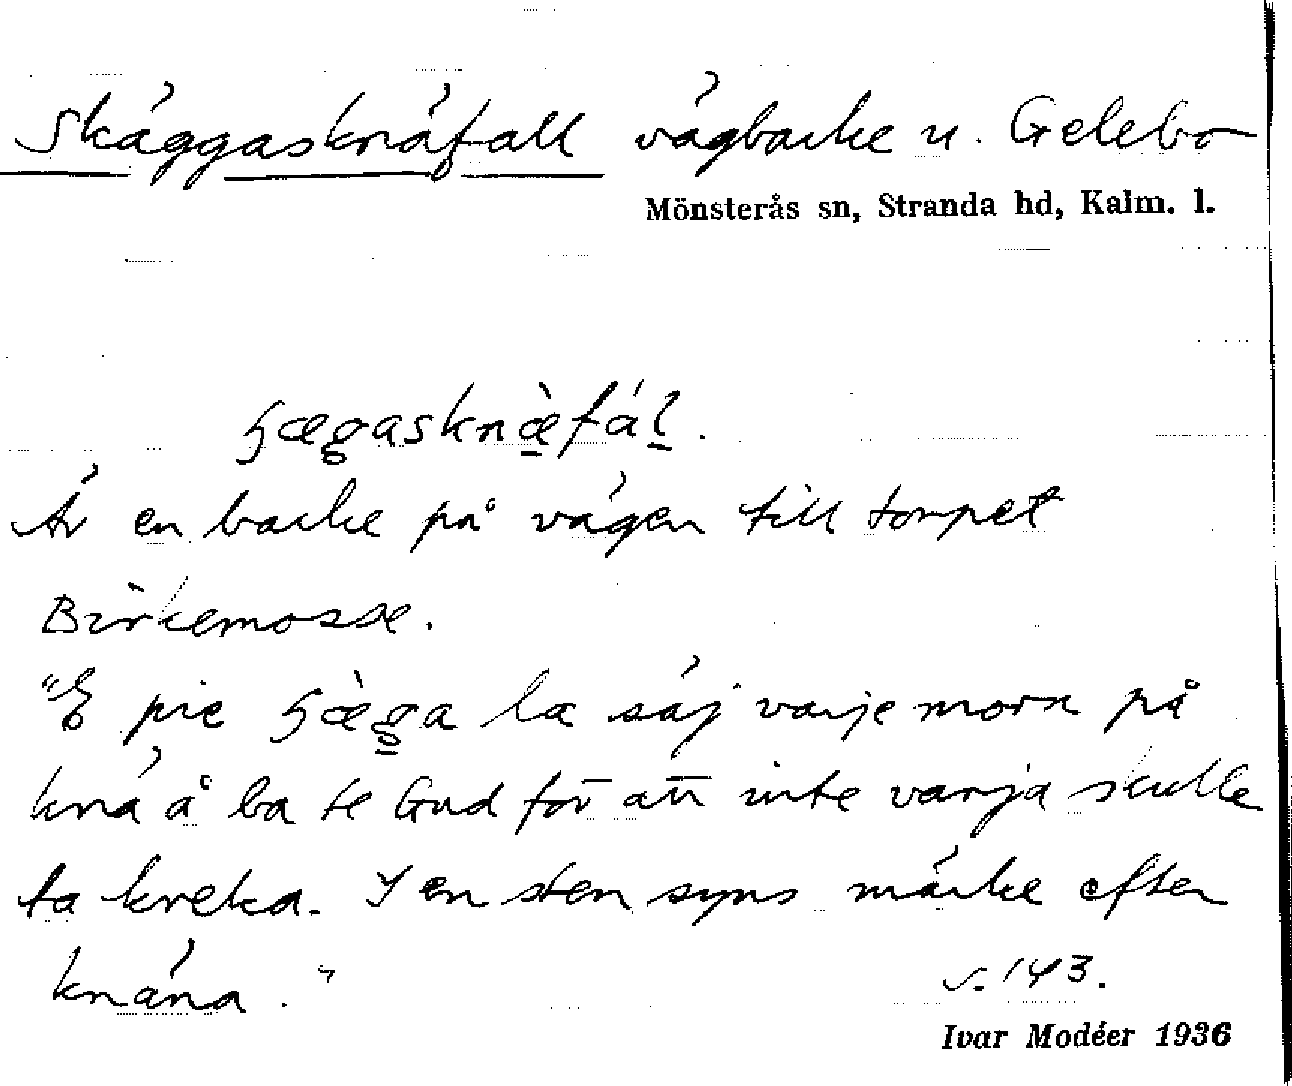 Skäggasknäfall vägbacke u. Gelebo
Mönsterås sn, Stranda hd, Kalm. l.
ʂægasknæ̀fáḷ.
Är en backe på vägen till torpet
Birkemosse.
"E pie ʂæ̀ga la säj varje morn på
knä å ba te Gud för att inte varja skulle
ta kreka. I en sten syns märke efter
knäna."
s. 143.
Ivar Modéer 1936